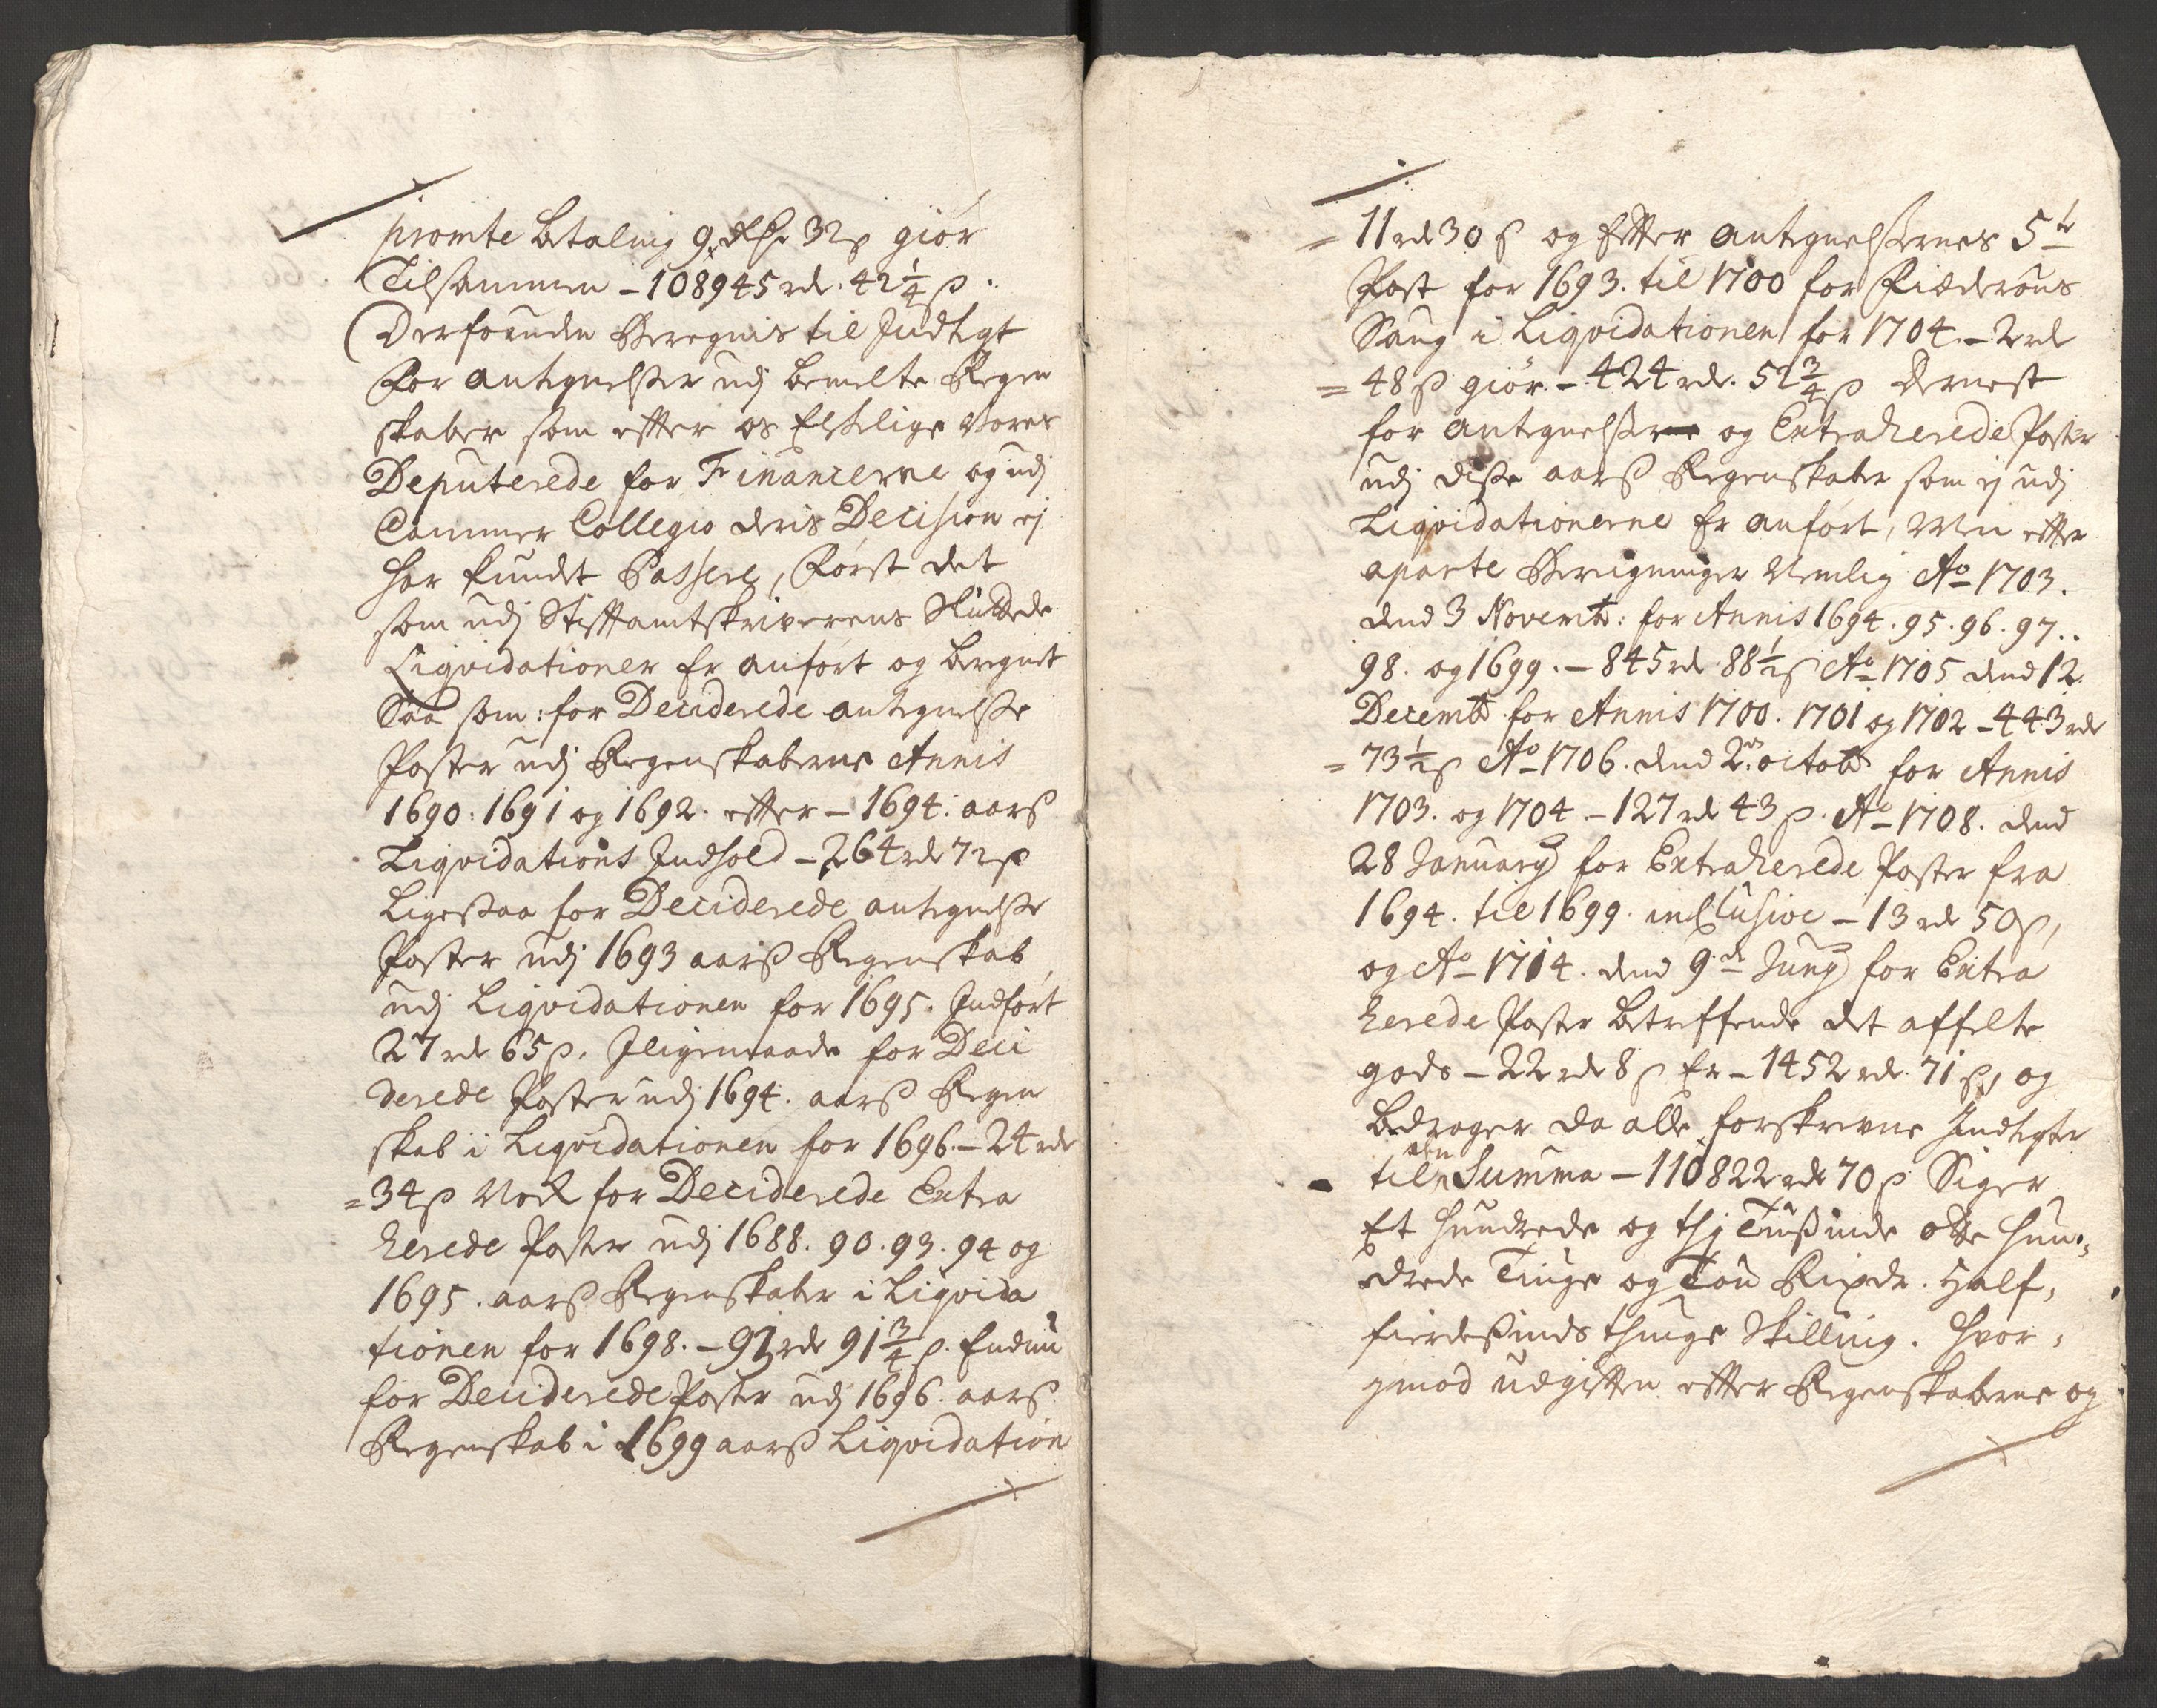 promte Betaling 9 Rdr 32 ß giør
Tilsammen – 108945 rdr. 42¼ ß.
Derforuden Beregnis til Indtegt
For antegnelßer udj bemelte Regen
skaber som efter os Elskelige Vores
Deputerede for Financerne og udj
Cammer Collegio deris Decision ej
har kundet Passere, Først det
som udj Stiftamtskriverens Sluttede
Liqvidationer Er anført og beregnet
Saa som: for Deciderede antegnelße
Poster udj Regenskaberne Annis
1690: 1691 og 1692. efter – 1694: aarß
Liqvidations Indhold – 264 rdr 72 ß
Ligesaa for Deciderede antegnelße
Poster udj 1693 aarß Regenskab
udj Liqvidationen for 1695. Indført
27 rdr 65 ß. Iligemaade for Deci
derede Poster udj 1694. aarß Regen
skab i Liqvidationen for 1696. – 24 rdr
= 34 ß Nock for Deciderede Extra
herede Poster udj 1688. 90. 93. 94 og
1695. aarß Regenskaber i Liqvida
tionen for 1698. – 91 rdr 91¾ ß. Endnu
for Deciderede Poster udj 1696. aarß
Regenskab i 1699 aarß Liqvidation
= 11 rdr 30 ß og Efter antegnelßernes 5te
Post for 1693. til 1700 for
Saug i Liqvidationen for 1704. – 2 rdr
= 48 ß giør – 424 rdr. 52¾ ß Dernest
for antegnelßer og Extraherede Poster
udj diße aarß Regenskaber som ej udj
Liqvidationerne Er anført, Men efter
aparte Beregninger Nemlig Ao 1703.
dend 3 Novemb: for Annis 1694. 95. 96. 97..
98. og 1699. – 845 rdr 88½ ß Ao 1705 dend 12.
Decemb for Annis 1700. 1701 og 1702 – 443 rdr
= 73½ ß Ao 1706. dend 2den octob for Annis
1703. og 1704 – 127 rdr 43 ß. Ao 1708. dend
28 January for Extraherede Poster fra
1694. til 1699. inclusive – 13 rdr 50 ß,
og Ao 1714. dend 9de Juny for Extra
herede Poster Betreffende det affelte
gods – 22 rdr 8 ß Er – 1452 rdr. 71 ß, og
Bedrager da alle forskrevne Indtegter
til en Summa – 110822 rdr 70 ß Siger
Et Hundrede og thj Tußinde otte Hun-
drede Tiuge og Tou Rixdr. Half-
fierdesinds thiuge Skilling. Hvor-
imod udgiften efter Regenskaberne og